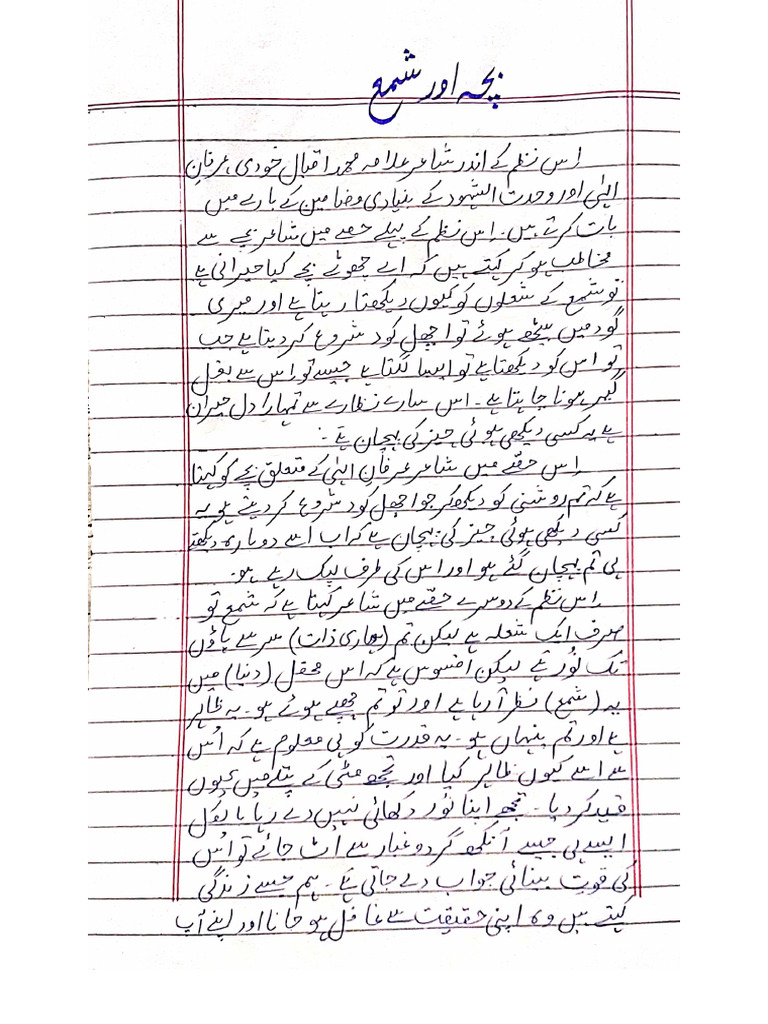 بچہ اور شمع
اِس نظم کے اندر شاعر علامہ محمد اقبال خودی، عرفانِ
الہٰی اور وحدت الشہود کے بنیادی مضامین کے بارے میں
بات کرتے ہیں۔ اِس نظم کے پہلے حصے میں شاعر بچے سے
مخاطب ہو کر کہتے ہیں کہ اے چھوٹے بچے کیا حیرانی ہے
تو شمع کے شعلوں کو کیوں دیکھتا رہتا ہے اور میری
گود میں بیٹھے ہوئے تو اچھل کود شروع کر دیتا ہے جب
تو اس کو دیکھتا ہے تو ایسا لگتا ہے جیسے تو اس سے بغل
گیر ہونا چاہتا ہے۔ اس سارے نظارے سے تمہارا دل حیران
ہے یہ کسی دیکھی ہوئی چیز کی پہچان ہے۔
اِس حصّے میں شاعر عرفانِ الہٰی کے متعلق بچے کو کہتا
ہے کہ تم روشنی کو دیکھ کر جو اچھل کود شروع کر دیتے ہو یہ
کسی دیکھی ہوئی چیز کی پہچان ہے کہ اب اسے دوبارہ دیکھتے
ہی تم پہچان گئے ہو اور اس کی طرف لپک رہے ہو۔
اِس نظم کے دوسرے حصّے میں شاعر کہتا ہے کہ شمع تو
صرف ایک شعلہ ہے لیکن تم (ہماری ذات) سر سے پاؤں
تک نُور ہے لیکن افسوس ہے کہ اس محفل (دنیا) میں
یہ (شمع) نظر آ رہا ہے اور تو تم چھپے ہوئے ہو۔ یہ ظاہر
ہے اور تم پنہاں ہو۔ یہ قدرت کو ہی معلوم ہے کہ اُس
نے اسے کیوں ظاہر کیا اور تجھے مٹی کے پتلے میں کیوں
قید کر دیا۔ تجھے اپنا نُور دکھائی نہیں دے رہا بالکل
ایسے ہی جیسے آنکھ گرد و غبار سے اٹ جائے تو اُس
کی قوتِ بینائی جواب دے جاتی ہے۔ ہم جسے زندگی
کہتے ہیں وہ اپنی حقیقت سے غافل ہو جانا اور اپنے آپ